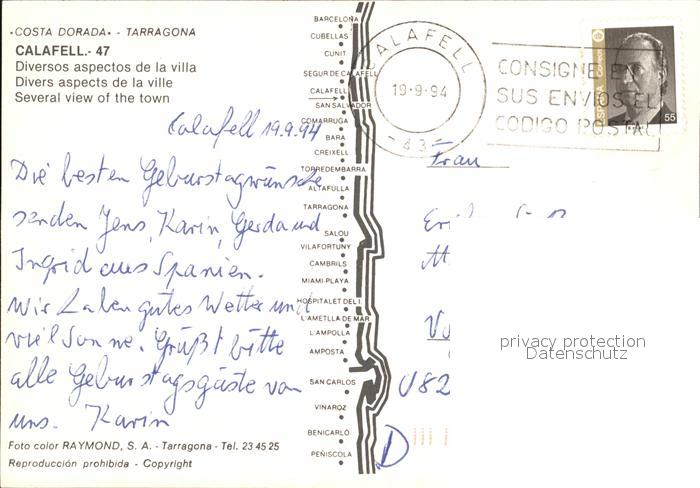 «COSTA DORADA» - TARRAGONA
CALAFELL.- 47
Diversos aspectos de la villa
Divers aspects de la ville
Several view of the town
Calafell 19.9.94
Die besten Geburstagwünsche
senden Jens, Karin, Gerda und
Ingrid aus Spanien.
Wir haben gutes Wetter und
viel Sonne. Grüßt bitte
alle Geburstagsgäste von
uns. Karin
Foto color RAYMOND, S. A. - Tarragona - Tel. 23 45 25
Reproducción prohibida - Copyright
BARCELONA
CUBELLAS
CUNIT
SEGUR DE CALAFELL
CALAFELL
SAN SALVADOR
COMARRUGA
BARA
CREIXELL
TORREDEMBARRA
ALTAFULLA
TARRAGONA
SALOU
VILAFORTUNY
CAMBRILS
MIAMI-PLAYA
HOSPITALET DEL I.
L'AMETLLA DE MAR
L'AMPOLLA
AMPOSTA
SAN CARLOS
VINAROZ
BENICARLÓ
PEÑISCOLA
CALAFELL
19-9-94
- 43 -
CONSIGNE EN
SUS ENVIOS EL
CODIGO POSTAL
ESPAÑA
55
Frau
082
D
privacy protection
Datenschutz